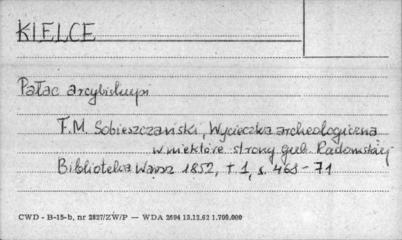 KIELCE
Pałac arcybiskupi
F.M. Sobieszczański, Wycieczka archeologiczna
w niektóre strony gub. Radomskiej
Biblioteka Warsz 1852, t 1, s. 468 - 71
CWD - B-15-b, nr 2827/ZW/P — WDA 2604 13.12.62 1.700.000